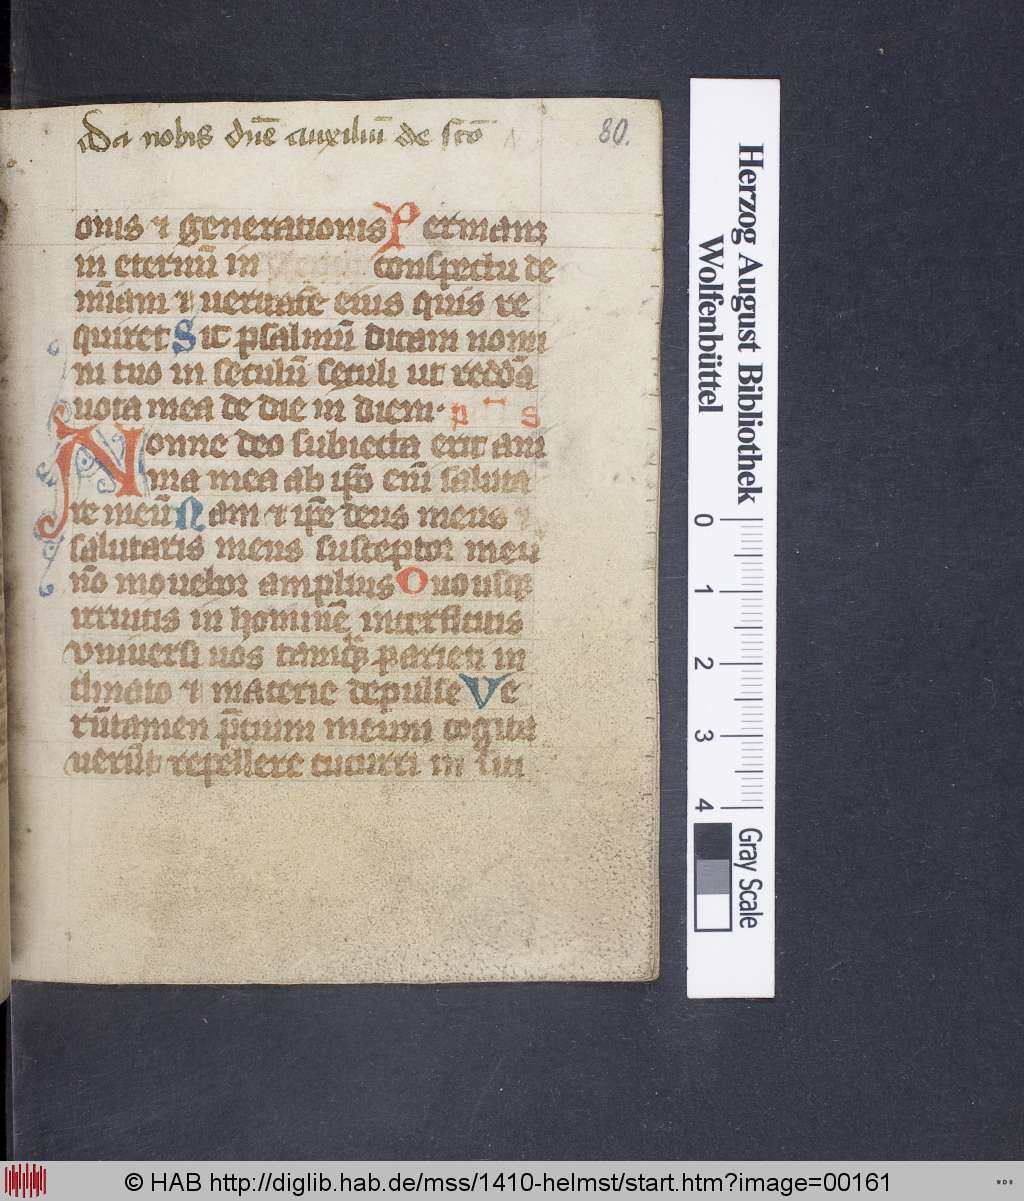 Da nobis dn̄e auxiliū de
80.
onis ⁊ generationis Permanꝫ
in eternū in conspectu dei
mi͞am ⁊ veritatē eius quis re
quiret Sic psalmū dicam nomi
ni tuo in seculū seculi ut reddā
uota mea de die in diem·
Nonne deo subiecta erit ani
ma mea ab ip̄o eni͞ saluta
re meū Nam ⁊ ip̄e deus meus ⁊
salutaris meus susceptor meu
nō mouebor amplius Quousqꝫ
irruitis in hominē interficitis
vniuersi uos tamqꝫ parieti in
clinato ⁊ materie depulse Ve
rūtamen p̄cium meum cogita
uerūt repellere cucurri in siti
Herzog August Bibliothek
Wolfenbüttel
0 1 2 3 4
Gray Scale
© HAB http://diglib.hab.de/mss/1410-helmst/start.htm?image=00161